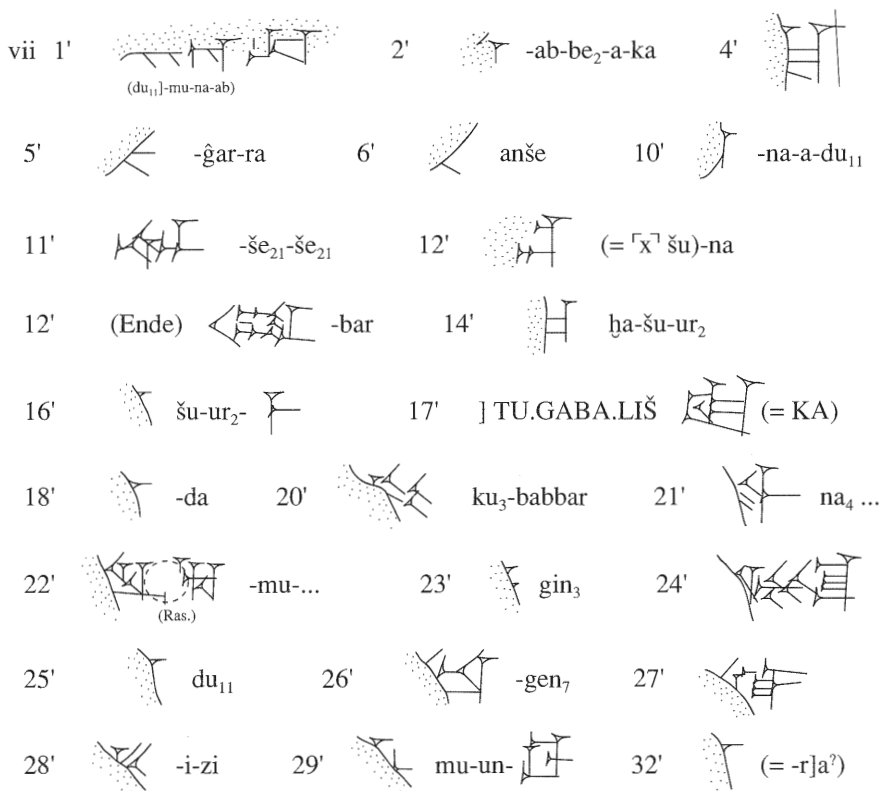 vii 1' (du₁₁]-mu-na-ab) 2' -ab-be₂-a-ka 4'
5' -ĝar-ra 6' anše 10' -na-a-du₁₁
11' -še₂₁-še₂₁ 12' (= ⸢x⸣ šu)-na
12' (Ende) -bar 14' ḫa-šu-ur₂
16' šu-ur₂- 17' ] TU.GABA.LIŠ (= KA)
18' -da 20' ku₃-babbar 21' na₄ ...
22' (Ras.) -mu-... 23' gin₃ 24'
25' du₁₁ 26' -gen₇ 27'
28' -i-zi 29' mu-un- 32' (= -r]a?)